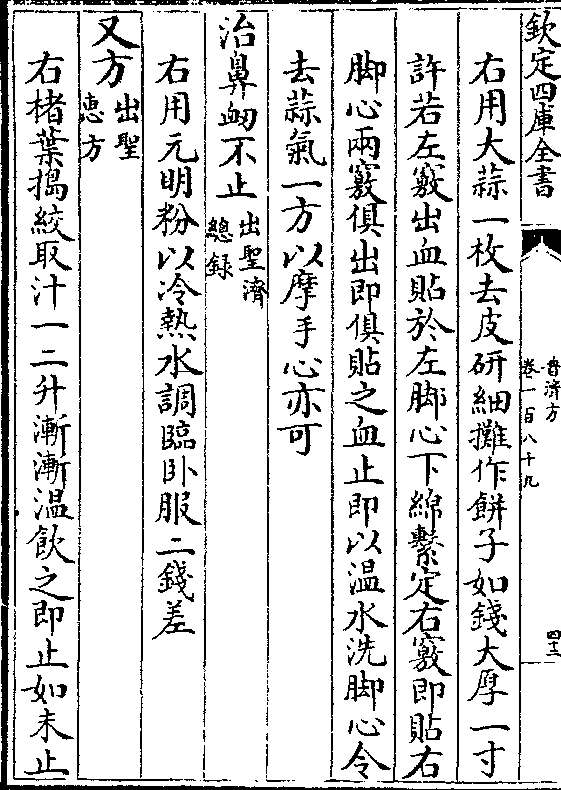 欽定四庫全書
普濟方
卷一百八十九
四十三
右用大蒜一枚去皮研細攤作餅子如錢大厚一寸
許若左竅出血貼於左脚心下綿繫定右竅即貼右
脚心兩竅俱出即俱貼之血止即以温水洗脚心令
去蒜氣一方以摩手心亦可
治鼻衂不止出聖濟總録
右用元明粉以冷熱水調臨卧服二錢差
又方出聖惠方
右楮葉搗絞取汁一二升漸漸温飲之即止如未止